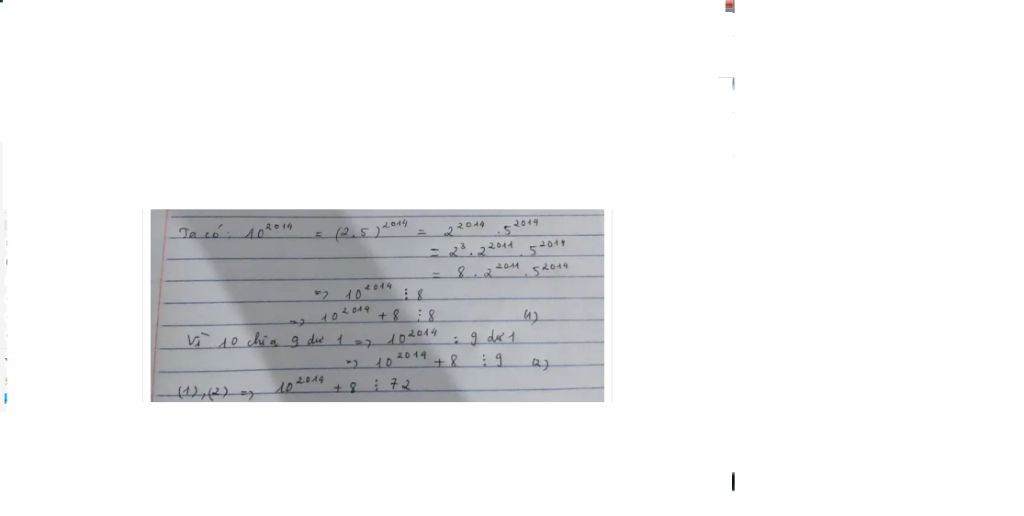 Ta có: 10²⁰¹⁴ = (2.5)²⁰¹⁴ = 2²⁰¹⁴ . 5²⁰¹⁴
= 2³ . 2²⁰¹¹ . 5²⁰¹⁴
= 8 . 2²⁰¹¹ . 5²⁰¹⁴
=> 10²⁰¹⁴ ⋮ 8
=> 10²⁰¹⁴ + 8 ⋮ 8 (1)
Vì 10 chia 9 dư 1 => 10²⁰¹⁴ : 9 dư 1
=> 10²⁰¹⁴ + 8 ⋮ 9 (2)
(1),(2) => 10²⁰¹⁴ + 8 ⋮ 72